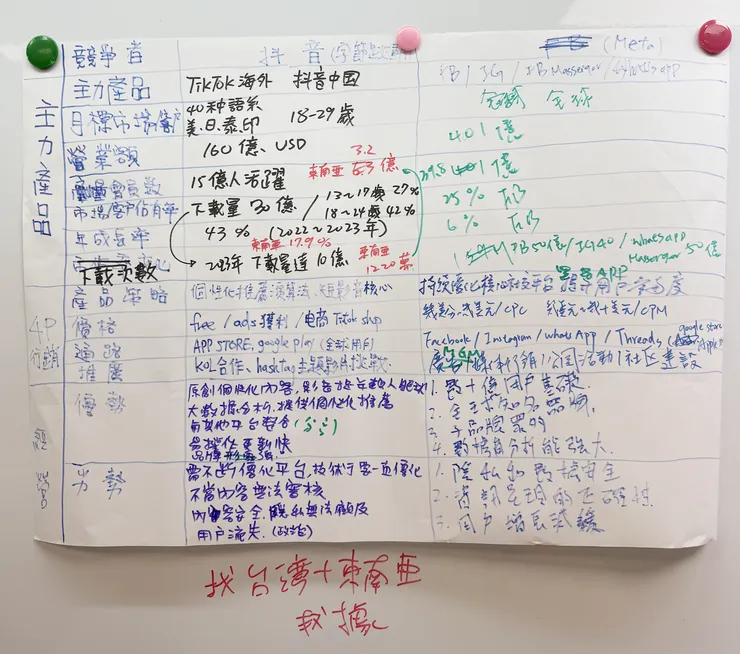 競爭者 抖音(字節跳動) (Meta)
主力產品
主力產品 TikTok海外 抖音中國 FB / IG / FB Massenger / whats app
目標市場/客戶 40种語系 18-29歲 全球 全球
美.日.泰.印
營業額 160億、USD 401億
3.2
東南亞 億
會員數 15億人活躍 億
市場/客戶佔有率 下載量 30億 / 13~17歲 27% 25% FB
18~24歲 42%
年成長率 43% (2022~2023年) 6% FB
東南亞17.9% 東南亞
下載次數 2023年 下載量達10億 1220萬 FB50億 / IG40 / whats app Massenger 50億
4P行銷
產品策略 個性化推薦演算法、短影音核心 持續優化核心社交平台 APP 提升用戶
價格 free / ads獲利 / 电商 Tiktok shop 幾美分~幾美元/CPC 幾美元~幾十美元/CPM
通路 APP STORE, google play (全球用戶) Facebook / Instagram / whats App / Threads (google store
推廣 KOL合作、hashtag主題影片挑戰 廣告 媒体行銷 / 公関活動 / 社区建設
優勢 原創個性化內容, 影音
大數據分析, 提供個性化推薦
與其他平台整合
易操作 更新快
1. 數十億用戶基礎.
2. 全球知名
3.
4. 數據分析能強大.
劣勢 需不断優化平台, 技術
不當內容無法審核
內容安全. 隱私無法顧及
用戶流失. (政治)
1. 隱私和數據安全
2. 資訊 的正確性.
3. 用戶增長
找台湾+東南亞
數據